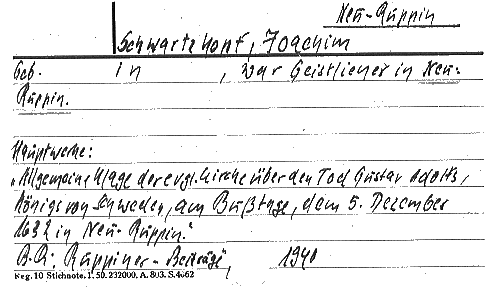 Neu-Ruppin
Schwartekopf, Joachim
Geb. in , war Geistlicher in Neu-
Ruppin.
Hauptwerke:
„Allgemeine Klage der evgl. Kirche über den Tod Gustav Adolfs,
Königs von Schweden, am Bußtage, dem 5. Dezember
1632 in Neu-Ruppin."
B.R: "Ruppiner-Beiträge", 1940
Reg. 10 Stichnote. I. 50. 232000. A. 803. S. 4662